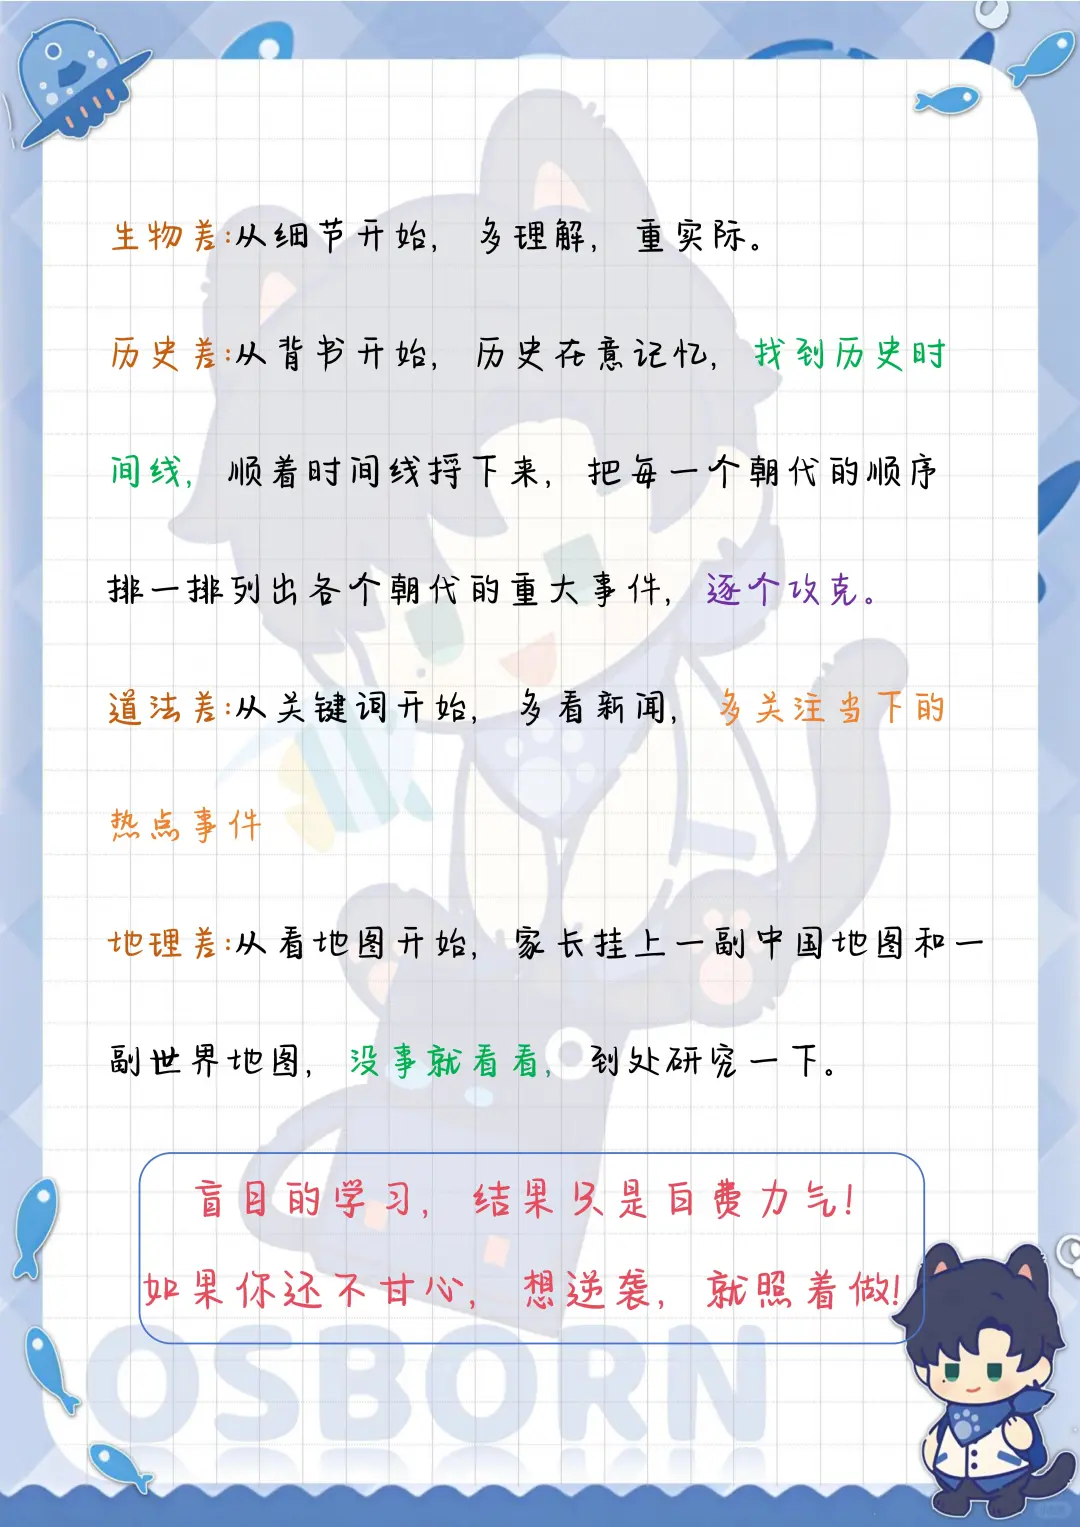 生物差:从细节开始，多理解，重实际。
历史差:从背书开始，历史在意记忆，找到历史时
间线，顺着时间线捋下来，把每一个朝代的顺序
排一排列出各个朝代的重大事件，逐个攻克。
道法差:从关键词开始，多看新闻，多关注当下的
热点事件
地理差:从看地图开始，家长挂上一副中国地图和一
副世界地图，没事就看看，到处研究一下。
盲目的学习，结果只是白费力气!
如果你还不甘心，想逆袭，就照着做!
OSBORN